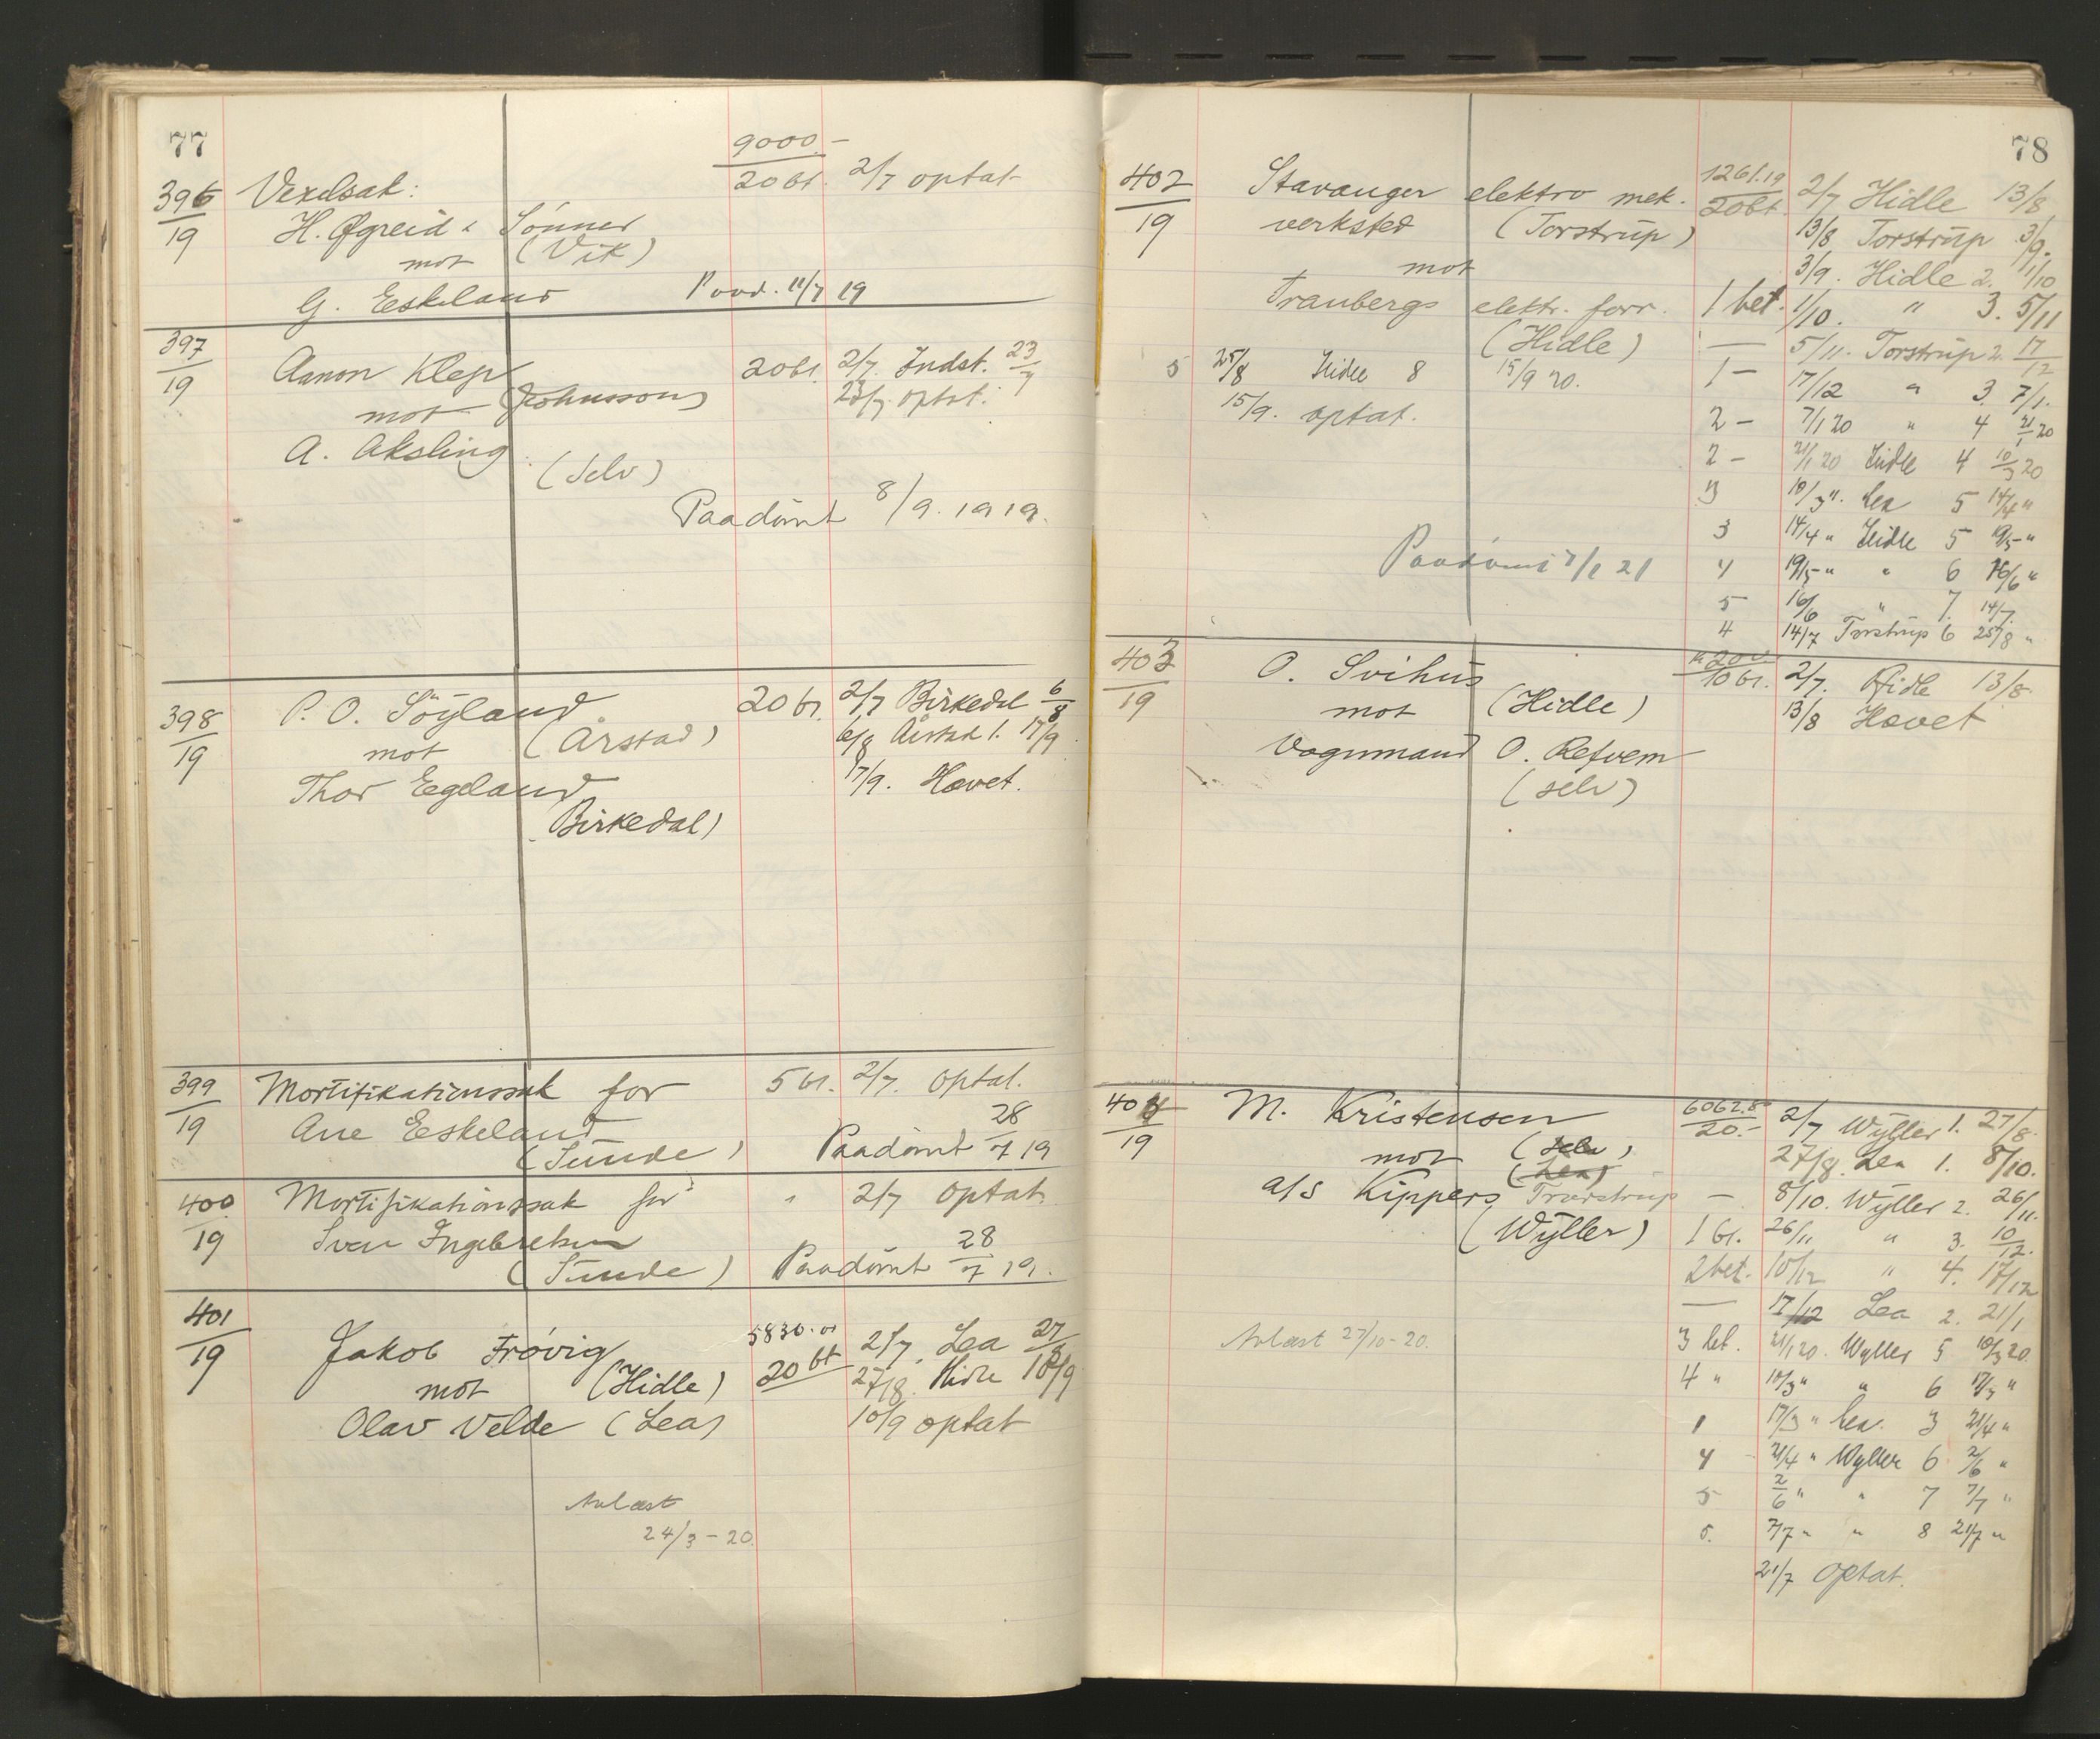 77
9000.-
396 Vexelsak: 20 bt. 2/7 optat
19 H. Øgreid & Sønner
mot (Vik)
G. Eskeland Paad. 11/7 19
397
19 Aanon Klep 20 bt. 2/7 Indst. 23/7
mot (Johnsson) 23/7 optat.
A. Aksling
(Selv)
Paadömt 8/9. 1919.
398 P. O. Söyland 20 bt. 2/7 Birkedal 6/8
19 mot (Årstad) 6/8 Årstad 1. 17/9
Thor Egeland 17/9. Hævet.
Birkedal)
399 Mortifikationssak for 5 bt. 2/7. optat.
19 Ane Eskeland
(Sunde) Paadömt 28/7 19
400 Mortifikationssak for " 2/7 optat.
19 Sven Ingebretsen
(Sunde) Paadömt 28/7 19.
401 5830.01
19 Jakob Frövig 20 bt 2/7. Lea 27/8
mot (Hidle) 27/8. Hidle 10/9
Olav Velde (Lea) 10/9 optat
Avlæst
24/3-20.
78
402 Stavanger elektro mek. 1261.19 2/7 Hidle 13/8
19 verksted (Torstrup) 20 bt. 13/8 Torstrup 3/9.
mot 3/9. Hidle 2. 1/10
Tranbergs elektr. forr. 1 bet. 1/10. " 3. 5/11
(Hidle) — 5/11. Torstrup 2. 17/12
5 25/8 Hidle 8 15/9 20. 1 - 17/12 " 3. 7/1.
15/9. optat. 2 - 7/1 20 " 4 21/1 20
2 - 21/1 20 Hidle 4 10/3 20
3 10/3 ". Lea 5 14/4 "
3 14/4 " Hidle 5 19/5 "
Paadömt 7/1 21 4 19/5 " " 6 16/6 "
5 16/6 " 7. 14/7.
4 14/7 Torstrup 6 25/8 "
403 O. Svihus 10 bt. 2/7. Hidle 13/8.
19 mot (Hidle) 13/8 Hævet
Vognmand O. Refvem
(selv)
404 M. Kristensen 6062.80 2/7 Wyller 1. 27/8.
19 mot (Selv) 20.- 27/8. Lea 1. 8/10.
(Lea)
a/s Kippers Torstrup — 8/10. Wyller 2. 26/11.
(Wyller) 1 bt. 26/11 " 3. 10/12.
2 bet. 10/12 " 4. 17/12
— 17/12 Lea 2. 21/1
Avlæst 27/10-20. 3 bet. 21/1 20. Wyller 5 10/3 20.
4 " 10/3 " " 6 17/3 "
1 17/3 " Lea. 3 21/4 "
4 21/4 " Wyller 6 2/6 "
5 2/6 " " 7 7/7 "
6. 7/7 " " 8 21/7 "
21/7 optat.